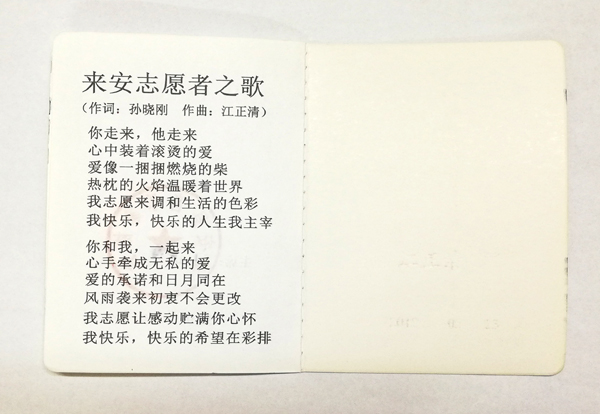 来安志愿者之歌
（作词：孙晓刚 作曲：江正清）
你走来，他走来
心中装着滚烫的爱
爱像一捆捆燃烧的柴
热枕的火焰温暖着世界
我志愿来调和生活的色彩
我快乐，快乐的人生我主宰
你和我，一起来
心手牵成无私的爱
爱的承诺和日月同在
风雨袭来初衷不会更改
我志愿让感动贮满你心怀
我快乐，快乐的希望在彩排